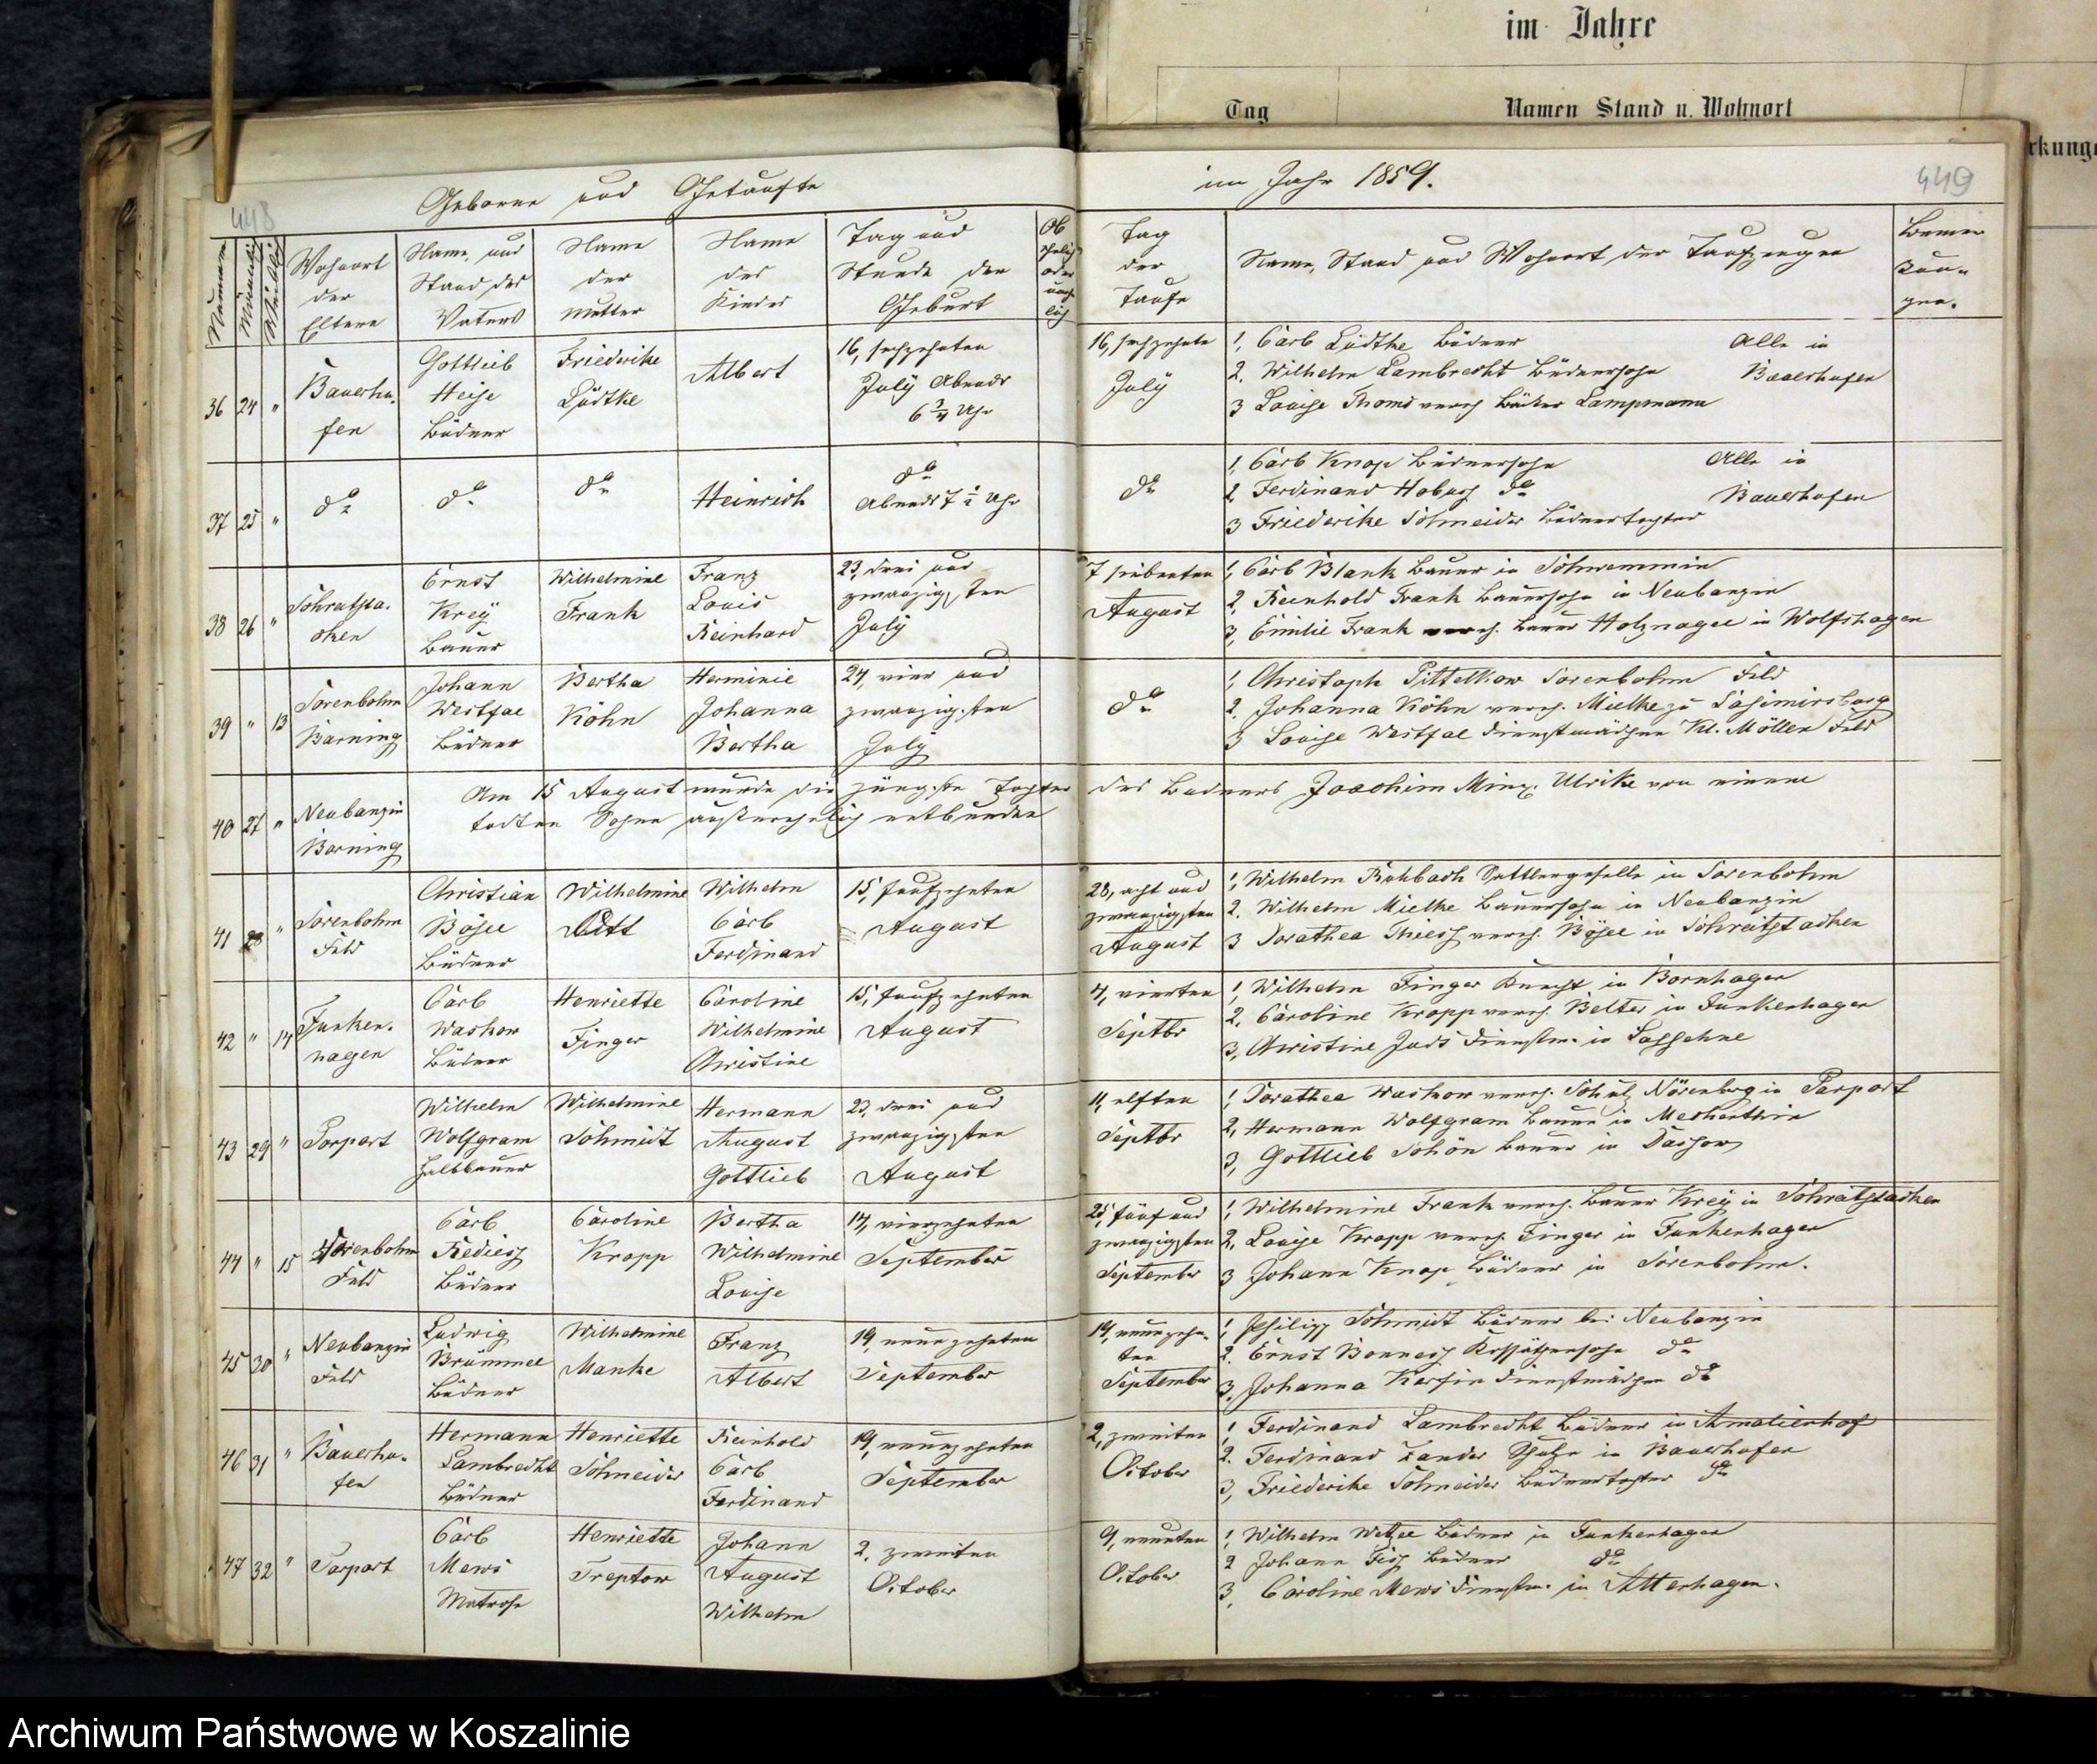 im Jahre
Tag
Namen Stand u. Wohnort
rkunge
448
Geborne und Getaufte
Nummer
Männlich
Weiblich
Wohnort
der
Eltern
Name, und
Stand des
Vaters
Name
der
Mutter
Name
des
Kindes
Tag und
Stunde der
Geburt
Ob
ehelich
oder
unehe
lich
im Jahr 1859.
449
Tag
der
Taufe
Name, Stand und Wohnort der Taufzeugen
Bemer
kun-
gen.
36 24 "
Bauerhu-
fen
Gottlieb
Heise
Büdner
Friederike
Lüdtke
Albert
16, sechzehnten
July Abends
6 3/4 Uhr
16, sechzehnte
July
1, Carl Lüdtke Büdner Alle in
2. Wilhelm Lambrecht Büdnersohn Bauerhufen
3 Louise Thoms vereh Bäcker Lampmann
37 25 "
do
do
do
Heinrich
do
Abends 7 1/2 Uhr
do
1, Carl Knop Büdnersohn Alle in
2, Ferdinand Hobus do Bauerhufen
3 Friederike Schneider Büdnertochter
38 26 "
Schratsta-
cken
Ernst
Krey
Bauer
Wilhelmine
Frank
Franz
Louis
Reinhard
23, drei und
zwanzigsten
July
7 siebenten
August
1, Carl Blank Bauer in Schwemmin
2, Reinhold Frank Bauersohn in Neubanzin
3, Emilie Frank vereh. Bauer Holznagel in Wolfshagen
39 " 13
Sorenbohm
Barning
Johann
Westfal
Büdner
Bertha
Köhn
Herminie
Johanna
Bertha
24, vier und
zwanzigsten
July
do
1, Christoph Pittelkow Sorenbohm Feld
2, Johanna Köhn vereh. Mielke zu Casimirsburg
3 Louise Westfal Dienstmädchen Kl. Möllen Feld
40 27 "
Neubanzin
Barning
Am 15 August wurde die jüngste Tochter des Büdners Joachim Minx. Ulrike von einem
todten Sohne außerehelich entbunden
41 28 "
Sorenbohm
Feld
Christian
Bösel
Büdner
Wilhelmine
Witt
Wilhelm
Carl
Ferdinand
15, fünfzehnten
August
28, acht und
zwanzigsten
August
1, Wilhelm Rohbach Sattlergeselle in Sorenbohm
2. Wilhelm Mielke Bauersohn in Neubanzin
3 Dorathea Thiess vereh. Bösel in Schratstacken
42 " 14
Funken-
hagen
Carl
Waskow
Büdner
Henriette
Finger
Caroline
Wilhelmine
Christine
15, fünfzehnten
August
4, vierten
Septbr
1, Wilhelm Finger Knecht in Bornhagen
2, Caroline Kropp vereh. Belter in Funkenhagen
3, Christine Jads Dienstm. in Lassehne
43 29 "
Porpart
Wilhelm
Wolfgram
Halbbauer
Wilhelmine
Schmidt
Hermann
August
Gottlieb
23, drei und
zwanzigsten
August
11, elften
Septbr
1, Dorathea Waskow vereh. Schulz Nörenberg in Parpart
2, Hermann Wolfgram Bauer in Mecherthin
3, Gottlieb Schön Bauer in Dassow
44 " 15
Sorenbohm
Feld
Carl
Rediess
Büdner
Caroline
Kropp
Bertha
Wilhelmine
Louise
14, vierzehnten
September
25, fünf und
zwanzigsten
September
1, Wilhelmine Frank vereh. Bauer Krey in Schratstacken
2, Louise Kropp vereh. Finger in Funkenhagen
3 Johann Knop Büdner in Sorenbohm.
45 30 "
Neubanzin
Feld
Ludwig
Brümmel
Büdner
Wilhelmine
Manke
Franz
Albert
19, neunzehnten
September
19, neunzehn-
ten
September
1, Philipp Schmidt Büdner bei Neubanzin
2. Ernst Bonness Kossäthensohn do
3, Johanna Karsin Dienstmädchen do
46 31 "
Bauerhu-
fen
Hermann
Lambrecht
Büdner
Henriette
Schneider
Reinhold
Carl
Ferdinand
19, neunzehnten
September
2, zweiten
October
1, Ferdinand Lambrecht Büdner in Amalienhof
2. Ferdinand Zander Schulze in Bauerhufen
3, Friederike Schneider Büdnertochter do
47 32 "
Parpart
Carl
Mews
Matrose
Henriette
Treptow
Johann
August
Wilhelm
2, zweiten
October
9, neunten
October
1, Wilhelm Wetzel Büdner in Funkenhagen
2 Johann Fisch Büdner do
3, Caroline Mews Dienstm. in Alterhagen.
Archiwum Państwowe w Koszalinie